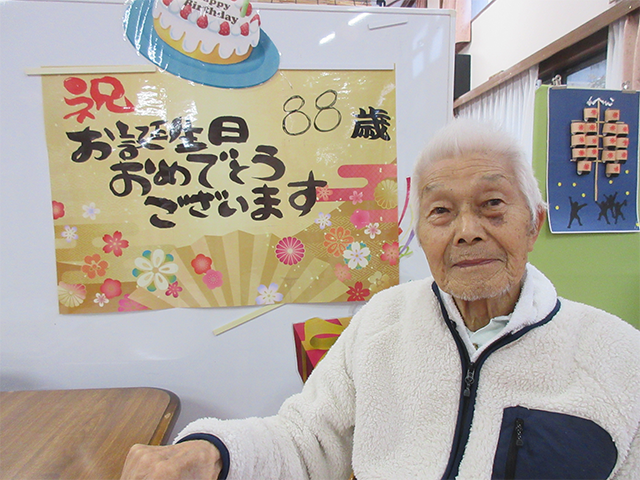 Happy
Birthday
祝
88歳
お誕生日
おめでとう
ございます